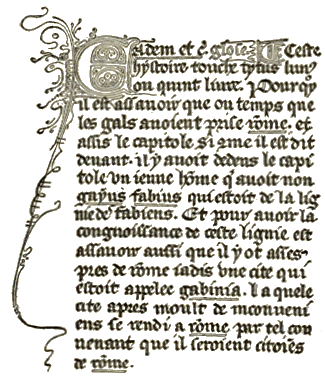 Eidem et c̄ glose. ¶ Ceste
hystoire touche tytus liuiꝰ
ou quint liure. Pourquoy
il est assauoir que ou temps que
les gals auoient prise rōme. et
assis le capitole si cōme il est dit
deuant. il y auoit dedens le capi
tole vn ienne hōme q̄ auoit non
gayus fabius qui estoit de la lig
nie de fabiens. Et pour auoir la
congnoissance de ceste lignie est
assauoir aussi que il y ot asses
pres de rōme iadis vne cite qui
estoit appelee gabinia. la quele
cite apres moult de inconueni
ens se rendi a rōme par tel con
uenant que il seroient citoiēs
de rōme.